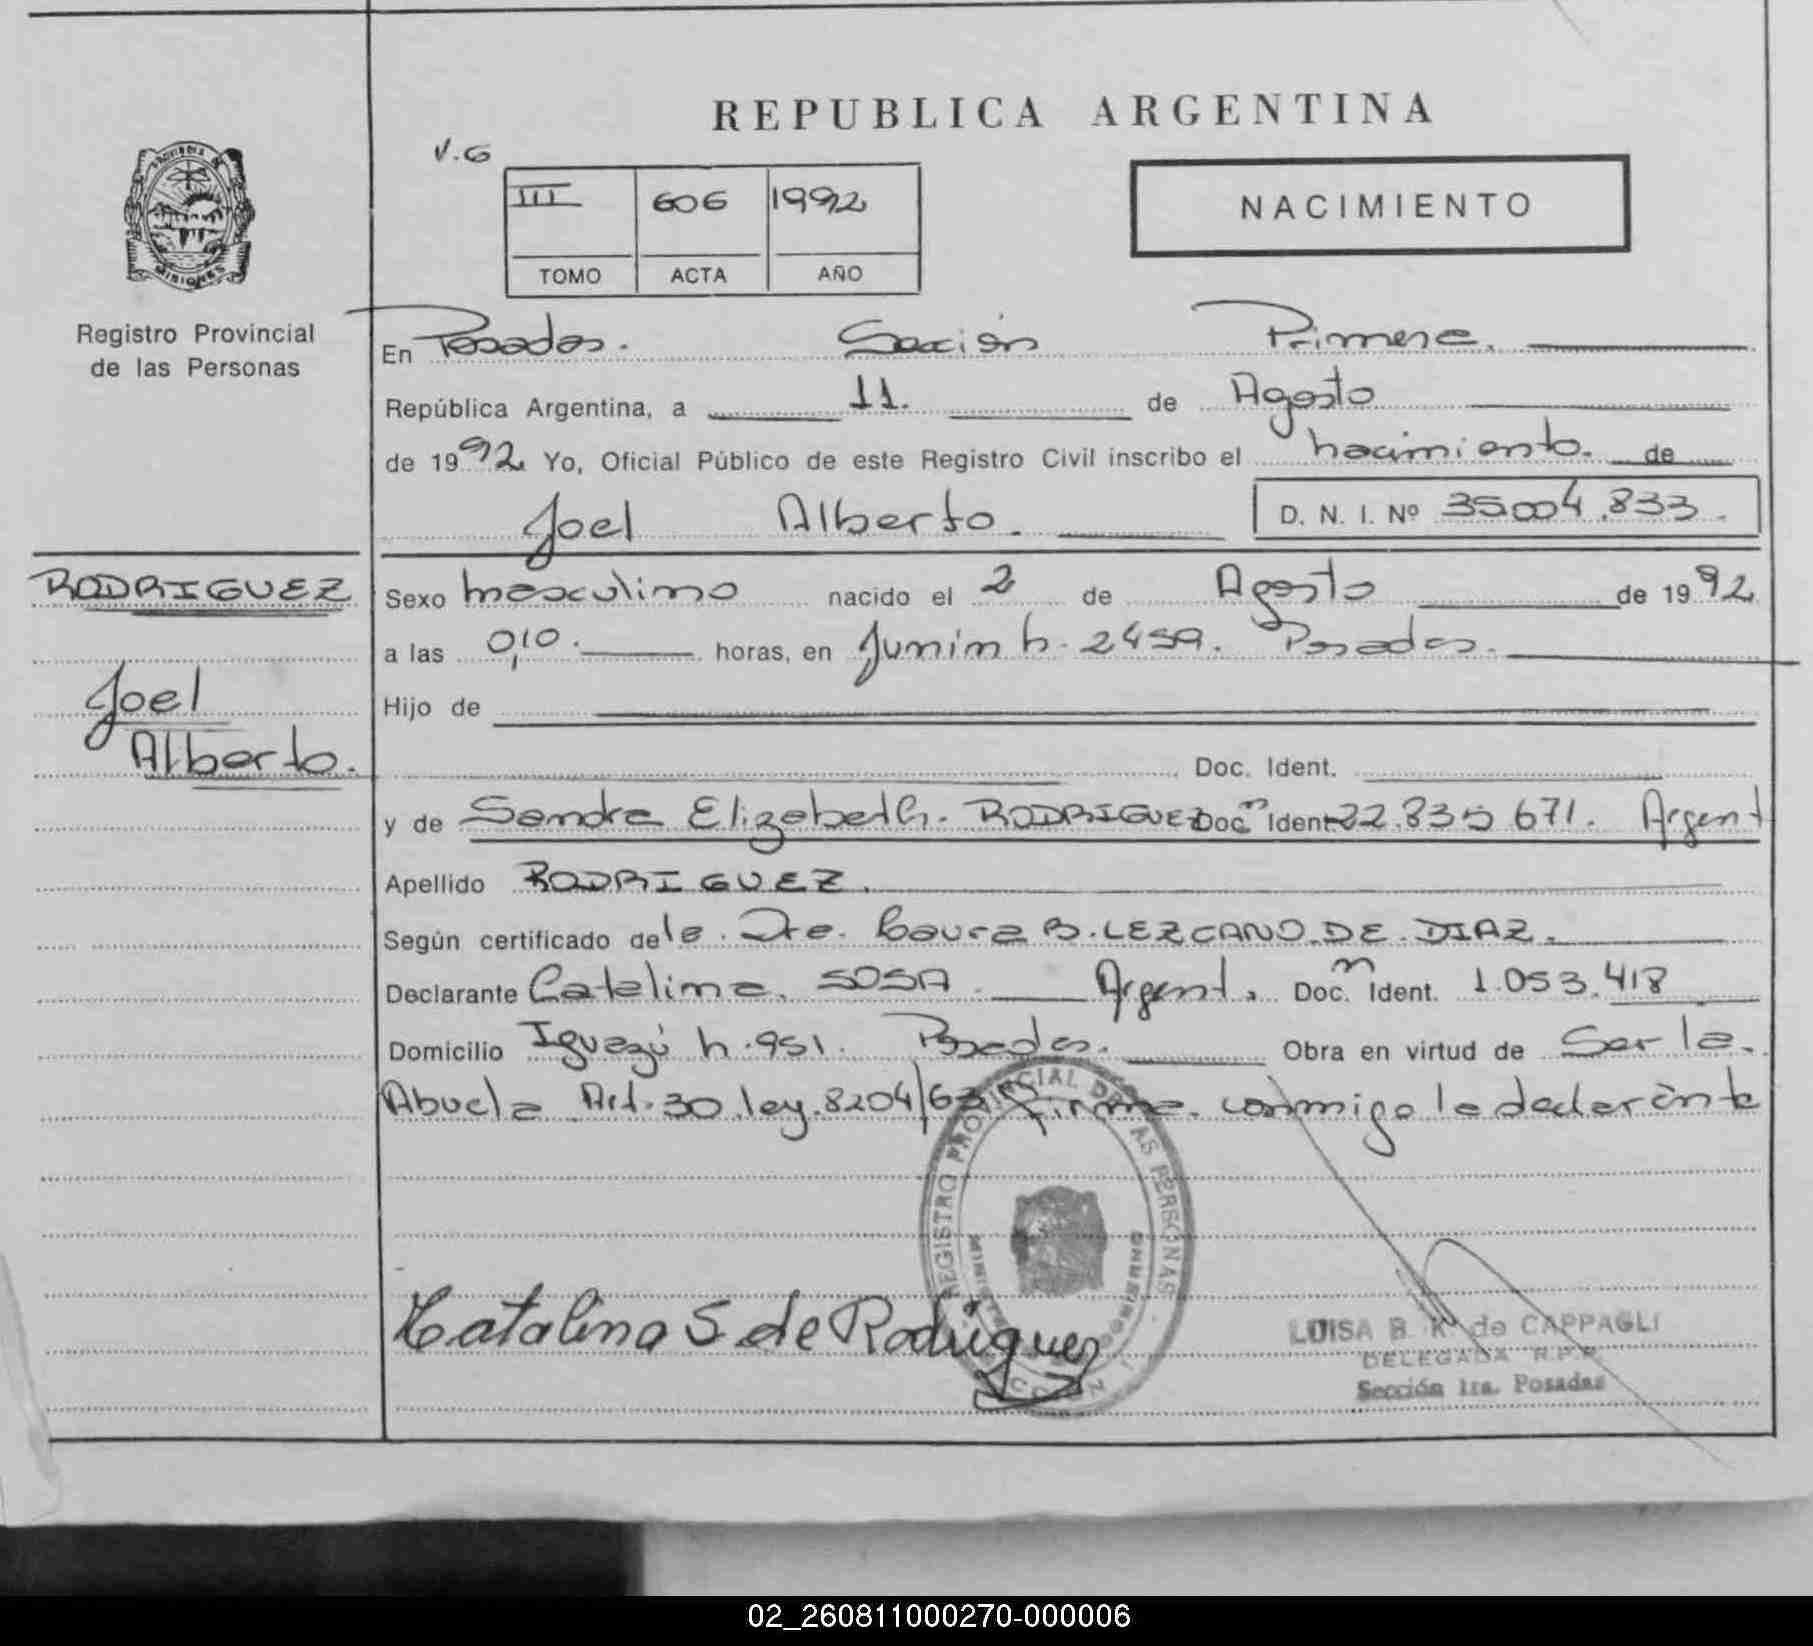 REPUBLICA ARGENTINA
V.G
III 606 1992
TOMO ACTA AÑO
NACIMIENTO
PROVINCIA DE
MISIONES
Registro Provincial
de las Personas
En Posadas. Sección Primera.
República Argentina, a 11. de Agosto
de 1992 Yo, Oficial Público de este Registro Civil inscribo el nacimiento. de
Joel Alberto. D. N. I. Nº 35.004.833.
RODRIGUEZ
Joel
Alberto.
Sexo masculino nacido el 2 de Agosto de 1992
a las 0,10. horas, en Junín n. 2459. Posadas.
Hijo de
Doc. Ident.
y de Sandra Elizabeth. RODRIGUEZ Doc. n Ident. 22.835671. Argent
Apellido RODRIGUEZ.
Según certificado de la. Dra. Laura B. LEZCANO. DE. DIAZ.
Declarante Catalina. SOSA. Argent. Doc. n Ident. 1.053.418
Domicilio Iguazú n. 951. Posadas. Obra en virtud de Ser la.
Abuela Art. 30 ley. 8204/63 Firma. conmigo la declarante
REGISTRO PROVINCIAL DE LAS PERSONAS
GOBIERNO
Catalina S. de Rodriguez
LUISA B. K. de CAPPAGLI
DELEGADA R.P.P.
Sección 1ra. Posadas
02_260811000270-000006